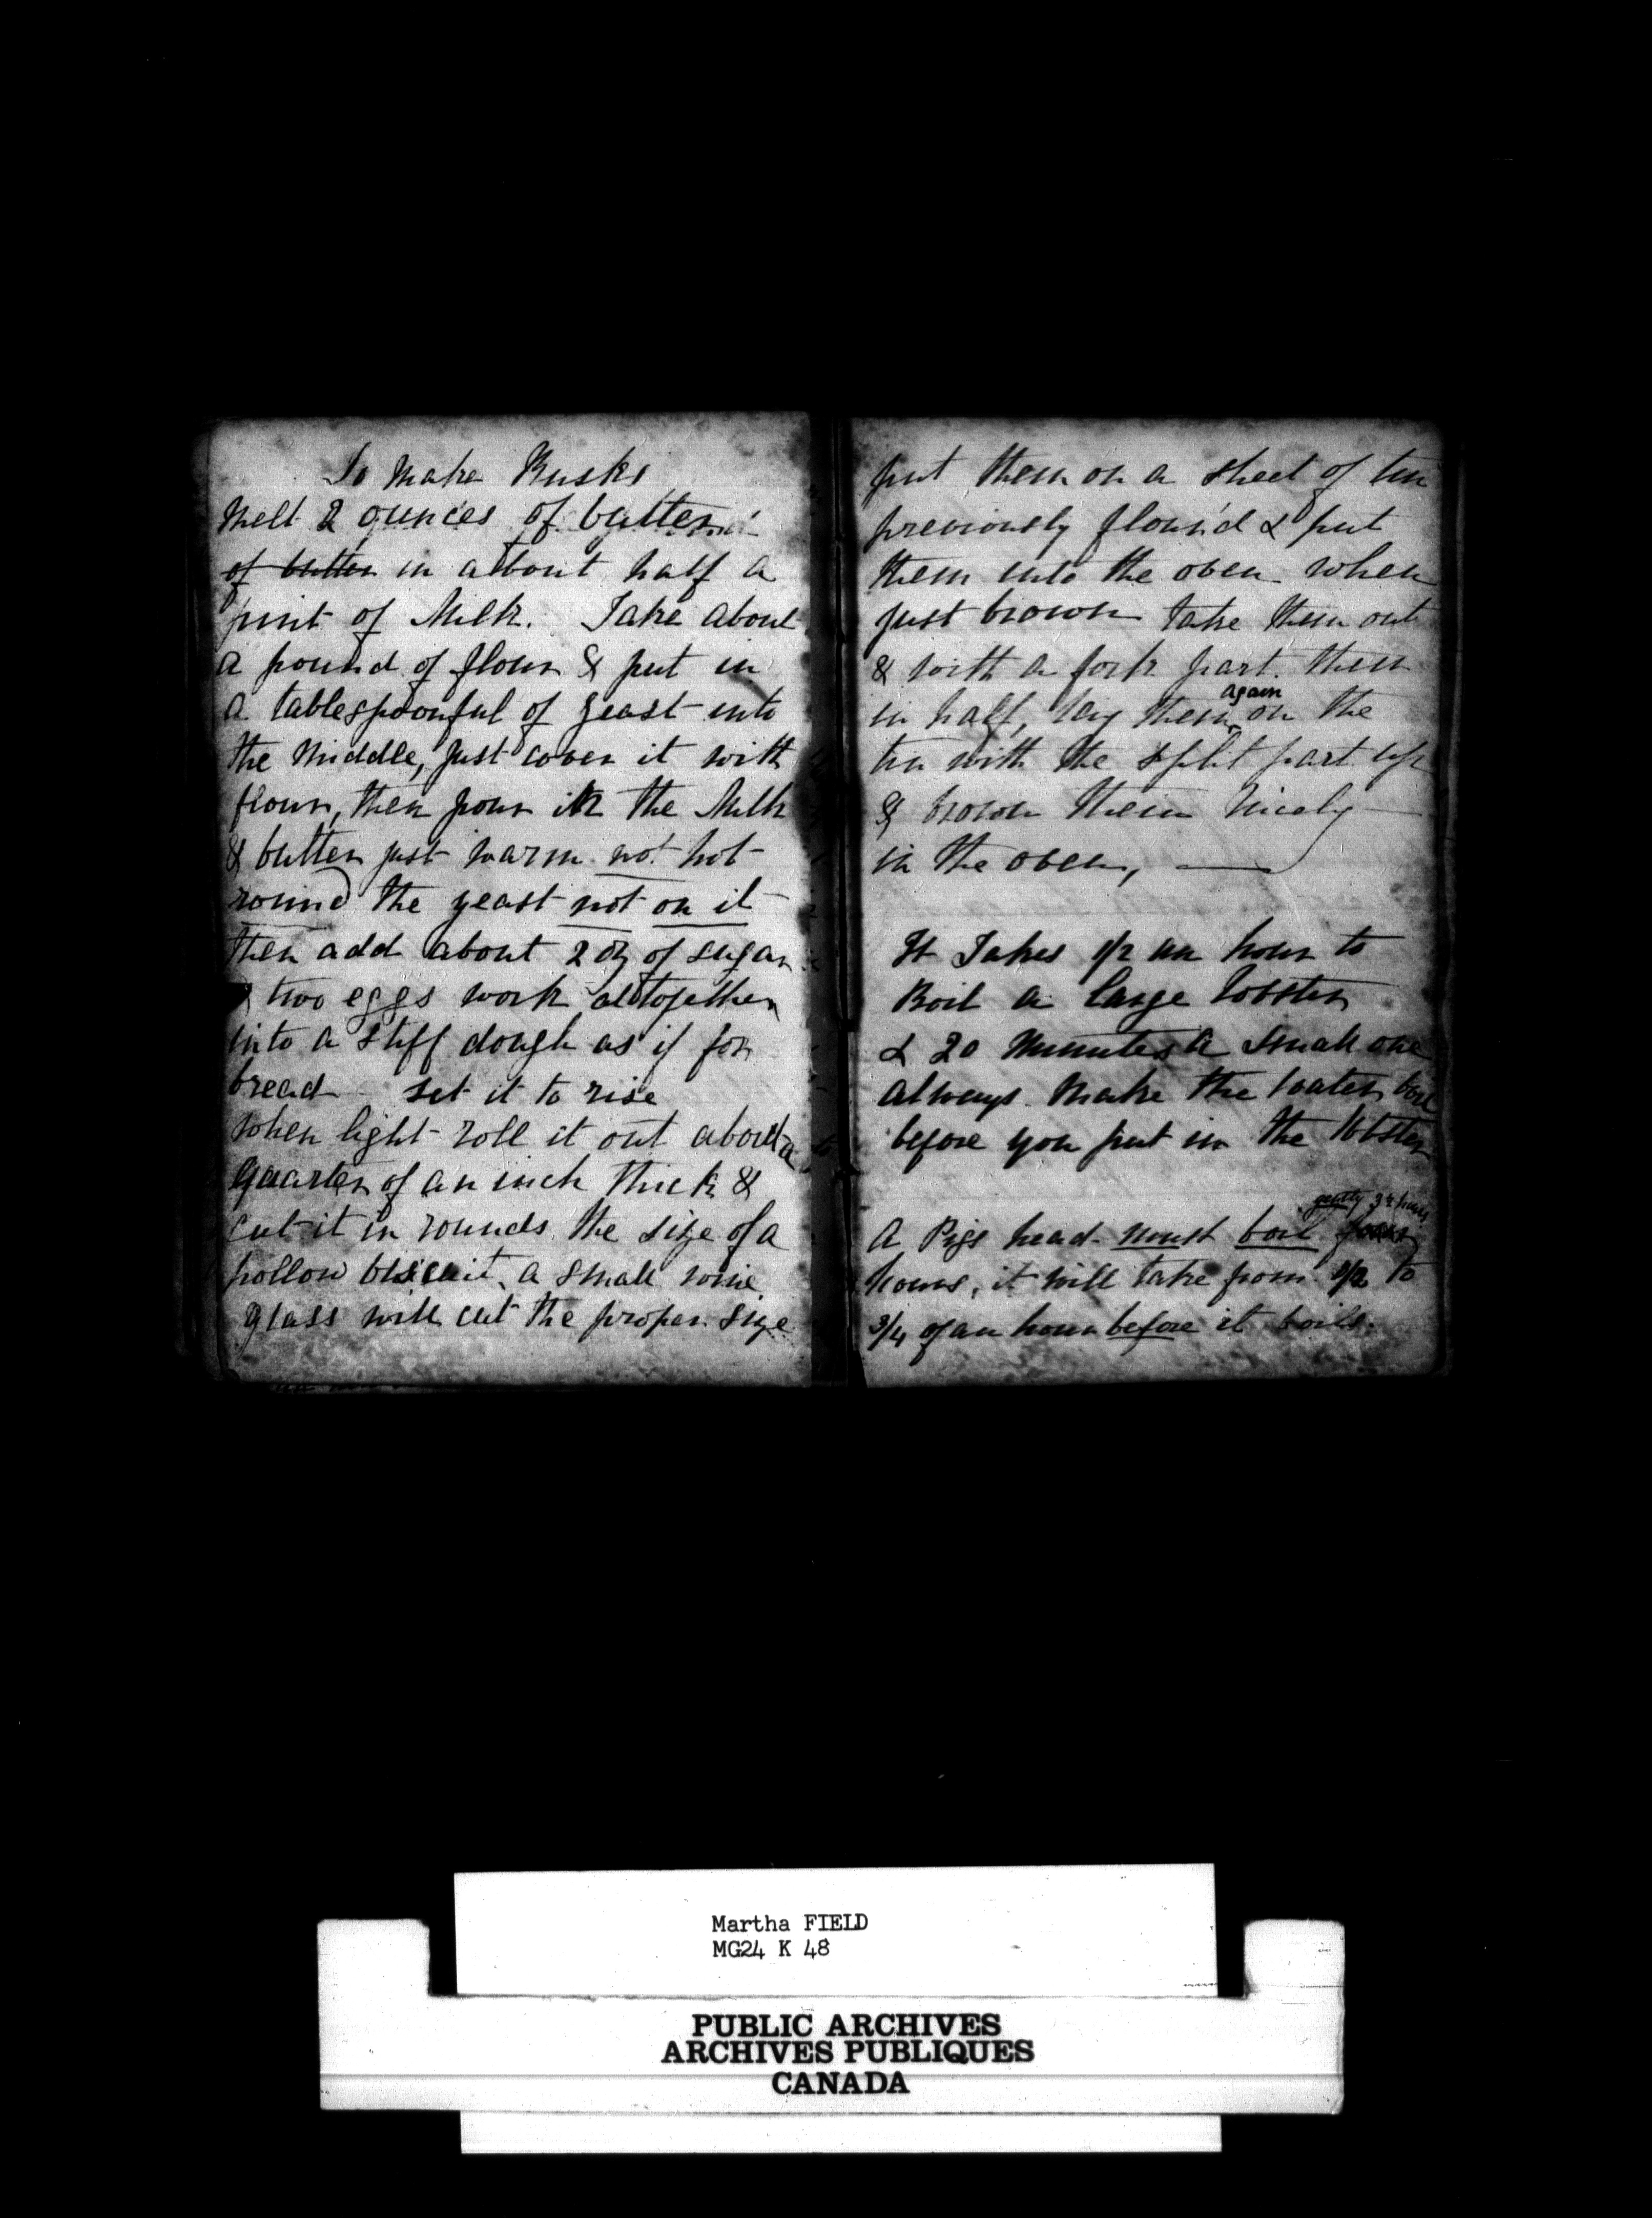 To Make Rusks
Melt 2 ounces of butter
of butter in about half a
pint of Milk. Take about
a pound of flour & put in
a tablespoonful of yeast into
the middle, just cover it with
flour, then pour in the Milk
& butter just warm not hot
round the yeast not on it
then add about 2 oz of sugar
& two eggs work altogether
into a stiff dough as if for
bread set it to rise
when light roll it out about a
quarter of an inch thick &
cut it in rounds the size of a
hollow biscuit, a small wine
glass will cut the proper size
put them on a sheet of tin
previously flour'd & put
them into the oven when
just brown take them out
& with a fork part them
in half, lay them again on the
tin with the split part up
& brown them nicely
in the oven,
It Takes 1/2 an hour to
Boil a large lobster
& 20 Minutes a small one
always make the water boil
before you put in the lobster
gently 3 hours
A Pigs head must boil
hours, it will take from 1/2 to
3/4 of an hour before it boils.
Martha FIELD
MG24 K 48
PUBLIC ARCHIVES
ARCHIVES PUBLIQUES
CANADA